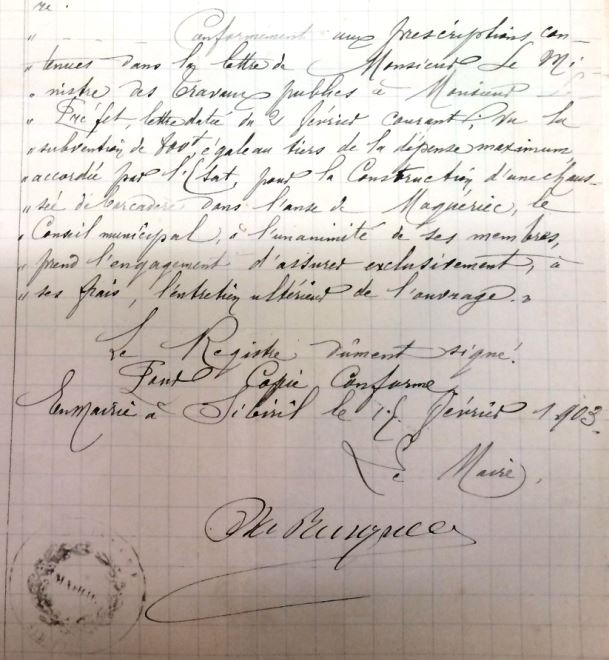 re.
" Conformement aux prescriptions con-
" tenues dans la lettre de Monsieur Le Mi-
" nistre des Travaux publics à Monsieur Le
" Préfet, lettre datée du 2 février courant; Vu la
" subvention de 800f égale au tiers de la dépense maximum
" accordée par l'Etat, pour la Construction, d'une chaus-
" sée débarcadère dans l'anse de Moguériec, le
" Conseil municipal, à l'unanimité de ses membres,
" prend l'engagement d'assurer exclusivement, à
" ses frais, l'entretien ultérieur de l'ouvrage. "
Le Registre dûment signé.
Pour Copie Conforme
En Mairie à Sibiril le février 1903.
Le Maire,
MAIRIE